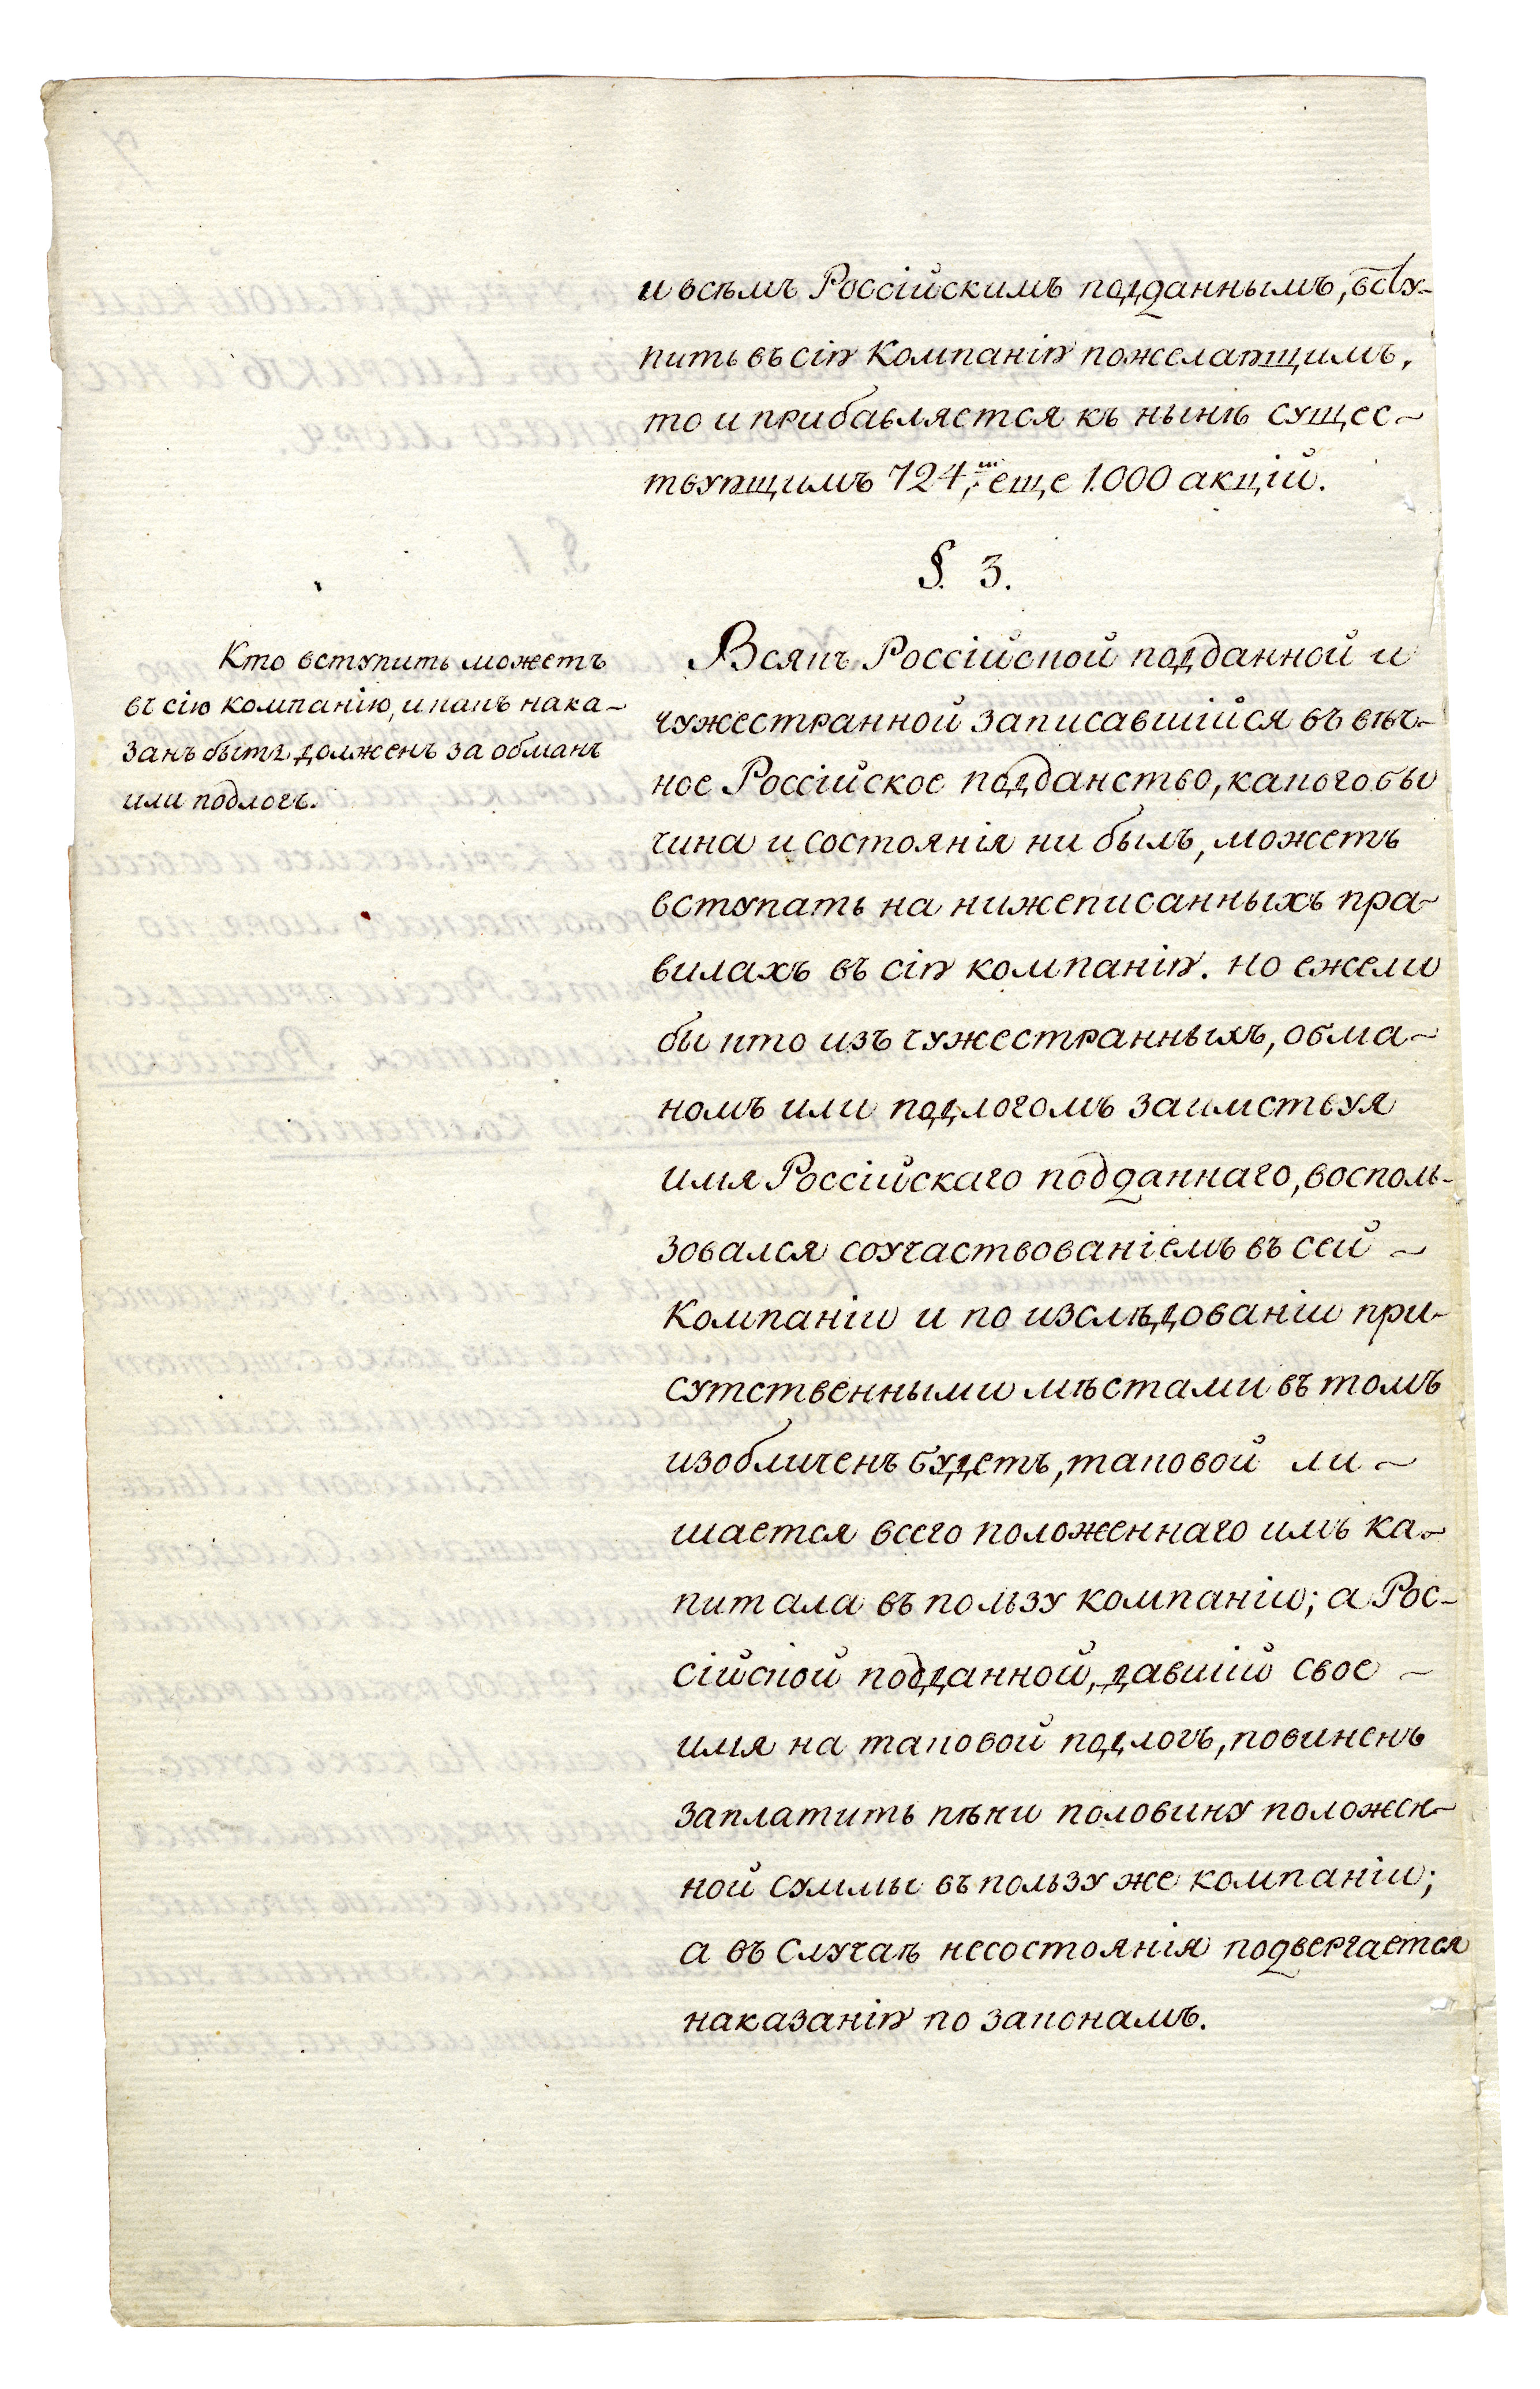 и всѣмъ Россійскимъ подданнымъ, всту-
пить въ сію Компанію пожелающимъ,
то и прибавляется къ нынѣ сущес-
твующимъ 724,ᵐ еще 1.000 акцій.
§. 3.
Кто вступить можетъ
въ сію компанію, и какъ нака-
занъ быть долженъ за обманъ
или подлогъ.
Всякъ Россійской подданной и
чужестранной записавшійся въ вѣч-
ное Россійское подданство, какого бы
чина и состоянія ни былъ, можетъ
вступать на нижеписанныхъ пра-
вилахъ въ сію компанію. но ежели
бы кто изъ чужестранныхъ, обма-
номъ или подлогомъ заимствуя
имя Россійскаго подданнаго, восполь-
зовался соучаствованіемъ въ сей -
Компаніи и по изслѣдованіи при-
сутственными мѣстами въ томъ
изобличенъ будетъ, таковой ли-
шается всего положеннаго имъ ка-
питала въ пользу компаніи; а Рос-
сійской подданной, давшій свое -
имя на таковой подлогъ, повиненъ
заплатить пѣни половину положен-
ной суммы въ пользу же компаніи;
а въ случаѣ несостоянія подвергается
наказанію по законамъ.